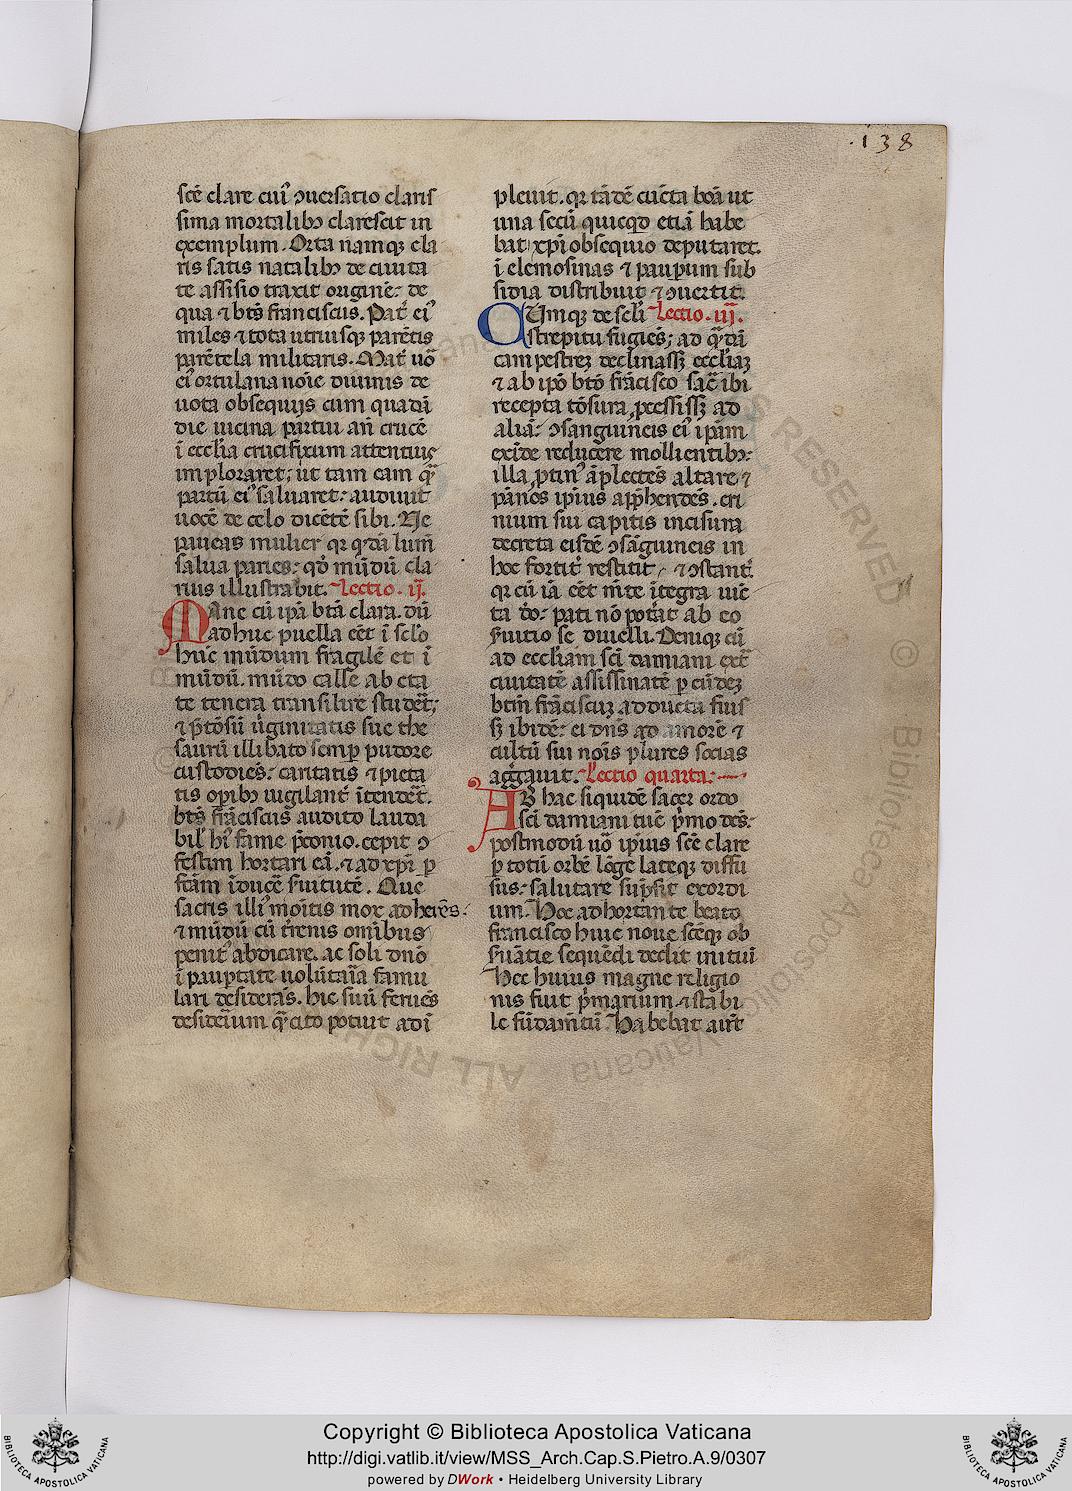 ·138
scē clare cui᷒ ↄuersatio claris
sima mortalibꝫ clarescit in
exemplum. Orta namqꝫ cla
ris satis natalibꝫ de ciuita
te assisio traxit originē: de
qua ⁊ bt̄s franciscus. Pat̄ ei᷒
miles ⁊ tota utriusqꝫ parētis
parētela militaris. Mat̄ uō
ei᷒ ortulana noīe diuinis de
uota obsequijs cum quadā
die uicina partui añ crucē
ī ecclīa crucifixum attentius
imploraret, ut tam eam
partū ei᷒ saluaret: audiuit
uocē de celo dicētē sibi. Ne
paueas mulier qꝛ qᵈdā lum̄
salua paries: qō mūdū cla
rius illustrabit. Lectio. ij.
Mane cū ip̄a btā clara. dū
adhuc puella eēt ī sclo
huīc mūdum fragilē et ī
mūdū. mūdo calle ab eta
te tenera transilire studeēt;
⁊ p̄tōsū ūginitatis sue the
saurū illibato semp̱ pudore
custodiēs: caritatis ⁊ pieta
tis opibꝫ uigilant̄ ītendēt.
bt̄s frāciscus audito lauda
bil᷒ hi᷒ fame p̄conio. cepit ↄ
festim hortari eā. ⁊ ad xp̄i p̱
fc̄am īducē s̄uitutē. Que
sacris illi᷒ moītis mox adherēs:
⁊ mūdū cū t̄renis omībus
penit᷒ abdicare. ac soli dn̄o
ī paup̱tate uolūtaīa famu
lari desiderās. hic suū feruēs
desideīum cito potiuit adī
pleuit. qꝛ tādē cūcta boā ut
una secū quicqᵈ etiā habe
bat xp̄i obsequio deputaret.
ī elemosinas ⁊ paup̱um sub
sidia distribuit ⁊ ↄuertit.
Cumqꝫ de scl̄i Lectio. iij.
strepitu fugiēs; ad qᵃdā
campestreꝫ declinassꝫ eccl̄iaꝫ
⁊ ab ip̄o btō frācisco sac̄ ibi
recepta tōsura p̱cessissꝫ ad
aliā: ↄsanguineis ei᷒ ip̄am
exīde reducere mollientibꝫ:
illa p̱tin᷒ āplectēs altare ⁊
pānos ip̄ius app̄hendēs. cri
nium sui capitis incisura
decreta eisdē ↄsāguineis in
hoc fortit̄ restitit, ⁊ ↄstant̄.
qꝛ cū iā eēt mēte ītegra iuīc
ta dō: pati nō potāt ab eo
s̄uitio se diuelli. Deniqꝫ cū
ad eccl̄iam scī damiani ext̄
ciuitatē assissinatē p̱ cūdeꝫ
btm̄ frāciscuꝫ adducta fuis
sꝫ ibidē: ei dn̄s ad amorē ⁊
cultū sui noīs plures socias
aggauit. Lectio quarta:
Ab hac siquidē sacer ordo
scī damiani tūc p̄mo dēs:
postmodū uō ip̄ius scē clare
p̱ totū orbē lōge lateqꝫ diffu
sus: salutare sup̄sit exordi
um. Hoc adhortante beato
francisco huic noue scēqꝫ ob
s̄uātie sequēdi dedit initiū
Hec huius magne religio
nis fuit p̄marium ⁊ stabi
le fūdam̄tū Habebat aut̄
Copyright © Biblioteca Apostolica Vaticana
http://digi.vatlib.it/view/MSS_Arch.Cap.S.Pietro.A.9/0307
powered by DWork • Heidelberg University Library